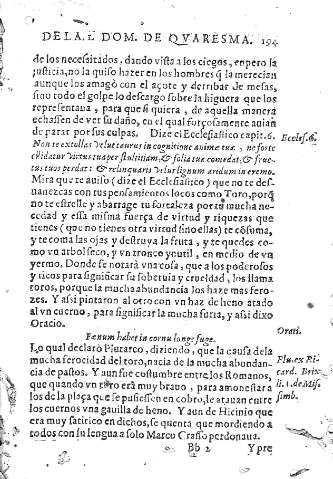 DE LA 1. DOM. DE QVARESMA. 194
de los necessitados, dando vista a los ciegos, enpero la
justicia, no la quiso hazer en los hombres q̃ la merecian
aunque los amagò con el açote y derribar de mesas,
sino todo el golpe lo descargo sobre la higuera que los
representaua, para que si quiera, de aquella manera
echassen de ver su daño, en el qual forçosamente auian
de parar por sus culpas. Dize el Ecclesiastico capit. 6.
Eccles. 6.
Non te extollas velut taurus in cognitione animæ tuæ, ne forte
elidatur virtus tua per stultitiam, & folia tua comedat, & fruc-
tus tuos perdat: & relinquaris velut lignum aridum in eremo.
Mira que te auiso (dize el Ecclesiastico) que no te des-
uanezcas con tus pensamientos locos como Toro, porq̃
no te estrelle y abarrage tu fortaleza por tu mucha ne-
cedad y essa misma fuerça de virtud y riquezas que
tienes (que no tienes otra virtud sino ellas) te cõsuma,
y te coma las ojas y destruya la fruta, y te quedes co-
mo vn arbol seco, y vn tronco ynutil, en medio de vn
yermo. Donde se notará vna cosa, que a los poderosos
y ricos para significar su soberuia y crueldad, los llama
toros, porque la mucha abundancia los haze mas fero-
zes. Y assi pintaron al otro con vn haz de heno atado
al vn cuerno, para significar la mucha furia, y asi dixo
Oracio.
Orati.
Fœnum habet in cornu longe fuge.
Lo qual declarò Plutarco, diziendo, que la causa de la
mucha ferocidad del toro, nacia de la mucha abundan-
cia de pastos. Y aun fue costumbre entre los Romanos,
que quando vn toro era muy brauo, para amonestar a
los de la plaça que se pusiessen en cobro, le atauan entre
los cuernos vna gauilla de heno. Y aun de Hicinio que
era muy satirico en dichos, se quenta que mordiendo a
todos con su lengua a solo Marco Crasso perdonaua.
Plu. ex Ri-
card. Brix.
li. 1. de Mis
simb.
Bb 2 Y pre